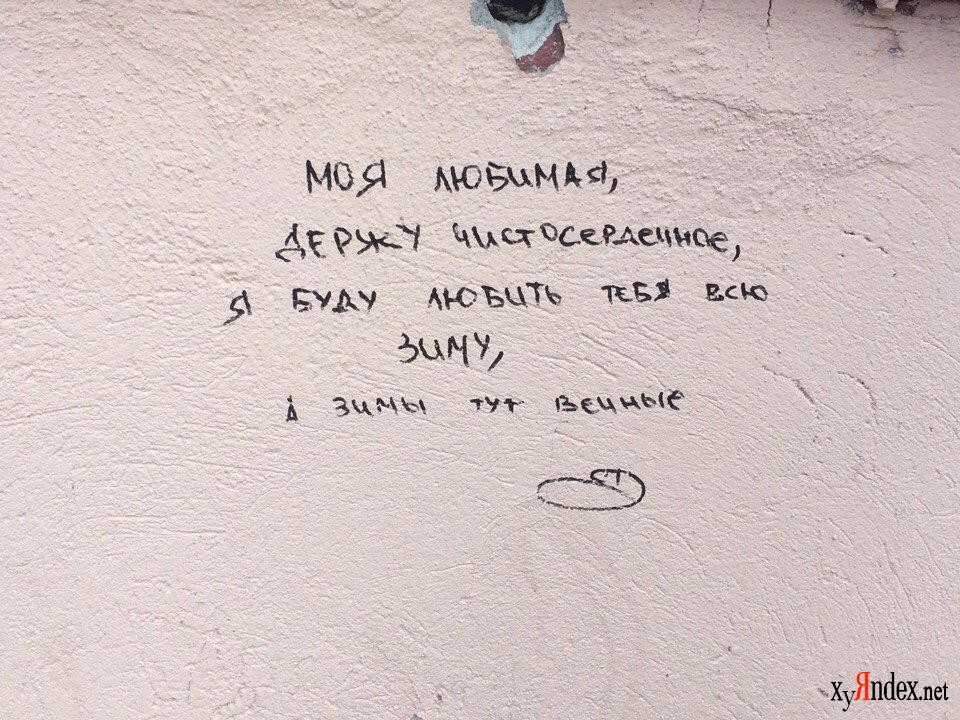 МОЯ ЛЮБИМАЯ,
ДЕРЖУ ЧИСТОСЕРДЕЧНОЕ,
Я БУДУ ЛЮБИТЬ ТЕБЯ ВСЮ
ЗИМУ,
А ЗИМЫ ТУТ ВЕЧНЫЕ
СТ
ХуЯndex.net